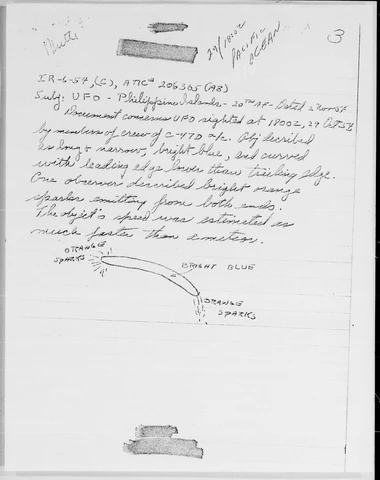 29/1800Z
PACIFIC
OCEAN
3
IR-6-54, (C), ATIC# 206305 (AB)
Subj: UFO - Philippine Islands - 20TH AF - Dated 2 Nov 54
Document concerns UFO sighted at 1800Z, 29 Oct 54
by members of crew of C-47D a/c. Obj decribed
as long & narrow, bright blue, and curved
with leading edge lower than trailing edge.
One observer described bright orange
sparks emitting from both ends.
The object's speed was estimated as
much faster than a meteor.
ORANGE
SPARKS
BRIGHT BLUE
ORANGE
SPARKS